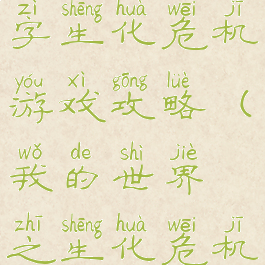 zì shēng huà wēi jī
字生化危机
yóu xì gōng lüè
游戏攻略（
wǒ de shì jiè
我的世界
zhī shēng huà wēi jī
之生化危机